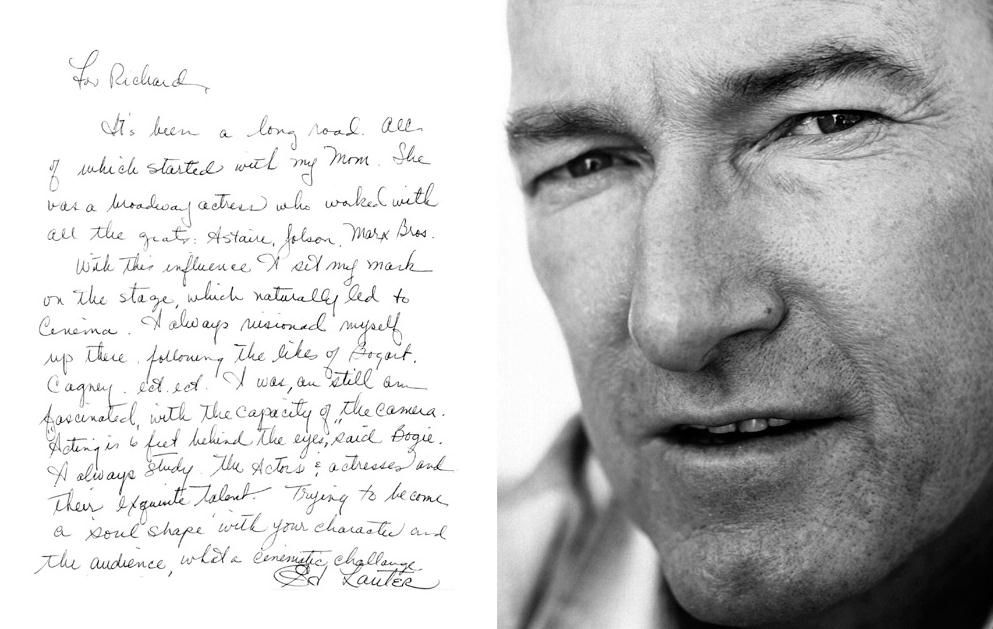 For Richard,
It's been a long road. All
of which started with my Mom. She
was a broadway actress who worked with
all the greats: Astaire, Jolson, Marx Bros.
With this influence I set my mark
on the stage, which naturally led to
Cenema. I always visioned myself
up there, following the likes of Bogart.
Cagney. ect. ect. I was, an still am
fascinated, with the capacity of the camera.
"Acting is 6 feet behind the eyes," said Bogie.
I always study the Actors & actresses and
their exquisite talent. Trying to become
a 'soul shape' with your character and
the audience, what a cenematic challange.
Ed Lauter